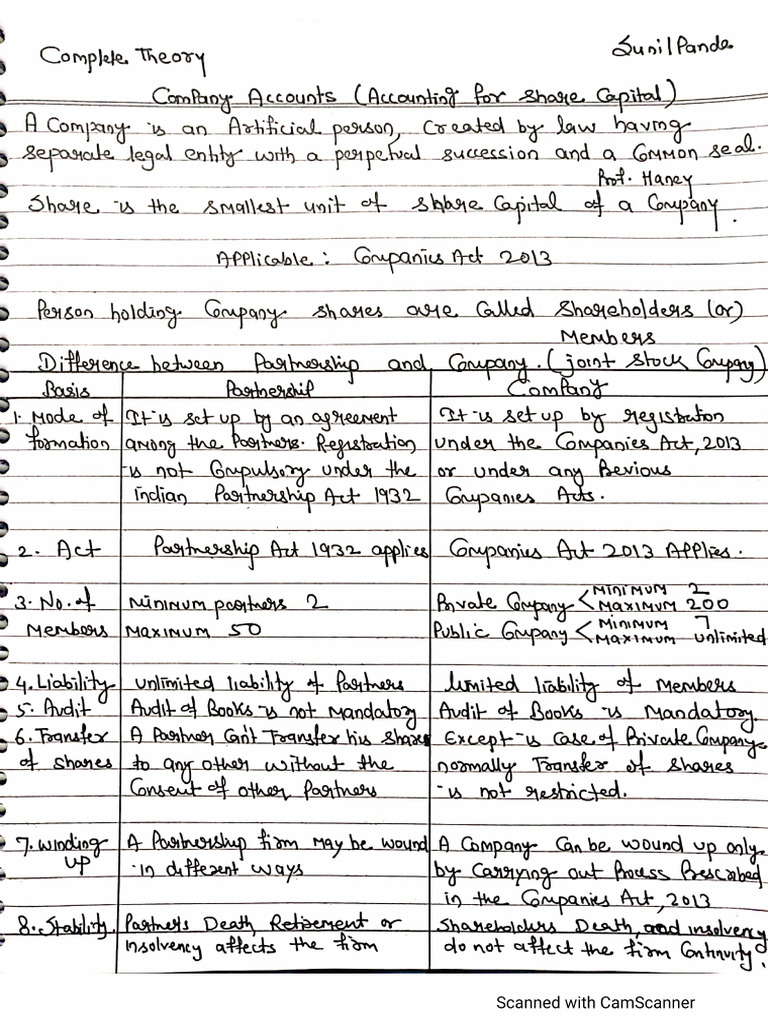 Complete Theory
Sunil Panda
Company Accounts (Accounting for Share Capital)
A Company is an Artificial person, Created by law having
separate legal entity with a perpetual succession and a Common seal.
Prof. Haney
Share is the smallest unit of share Capital of a Company.
Applicable : Companies Act 2013
Person holding Company shares are Called Shareholders (or)
Members
Difference between Partnership and Company. (joint stock Company)
Basis | Partnership | Company
1. Mode of | It is set up by an agreement | It is set up by registration
formation | among the Partners. Registration | under the Companies Act, 2013
is not Compulsory under the | or under any Previous
Indian Partnership Act 1932 | Companies Acts.
2. Act | Partnership Act 1932 applies | Companies Act 2013 Applies.
3. No. of | Minimum partners 2 | Private Company < Minimum 2 Maximum 200
Members | Maximum 50 | Public Company < Minimum 7 Maximum unlimited
4. Liability | unlimited liability of Partners | limited liability of Members
5. Audit | Audit of Books is not Mandatory | Audit of Books is Mandatory.
6. Transfer | A Partner Can't Transfer his Share | Except is Case of Private Company
of shares | to any other without the | normally Transfer of shares
Consent of other Partners | is not restricted.
7. winding | A Partnership firm may be wound | A Company Can be wound up only
up | in different ways | by Carrying out Process Prescribed
in the Companies Act, 2013
8. Stability | Partners Death, Retirement or | Shareholders Death, and insolvency
insolvency affects the firm | do not affect the firm Continuity.
Scanned with CamScanner